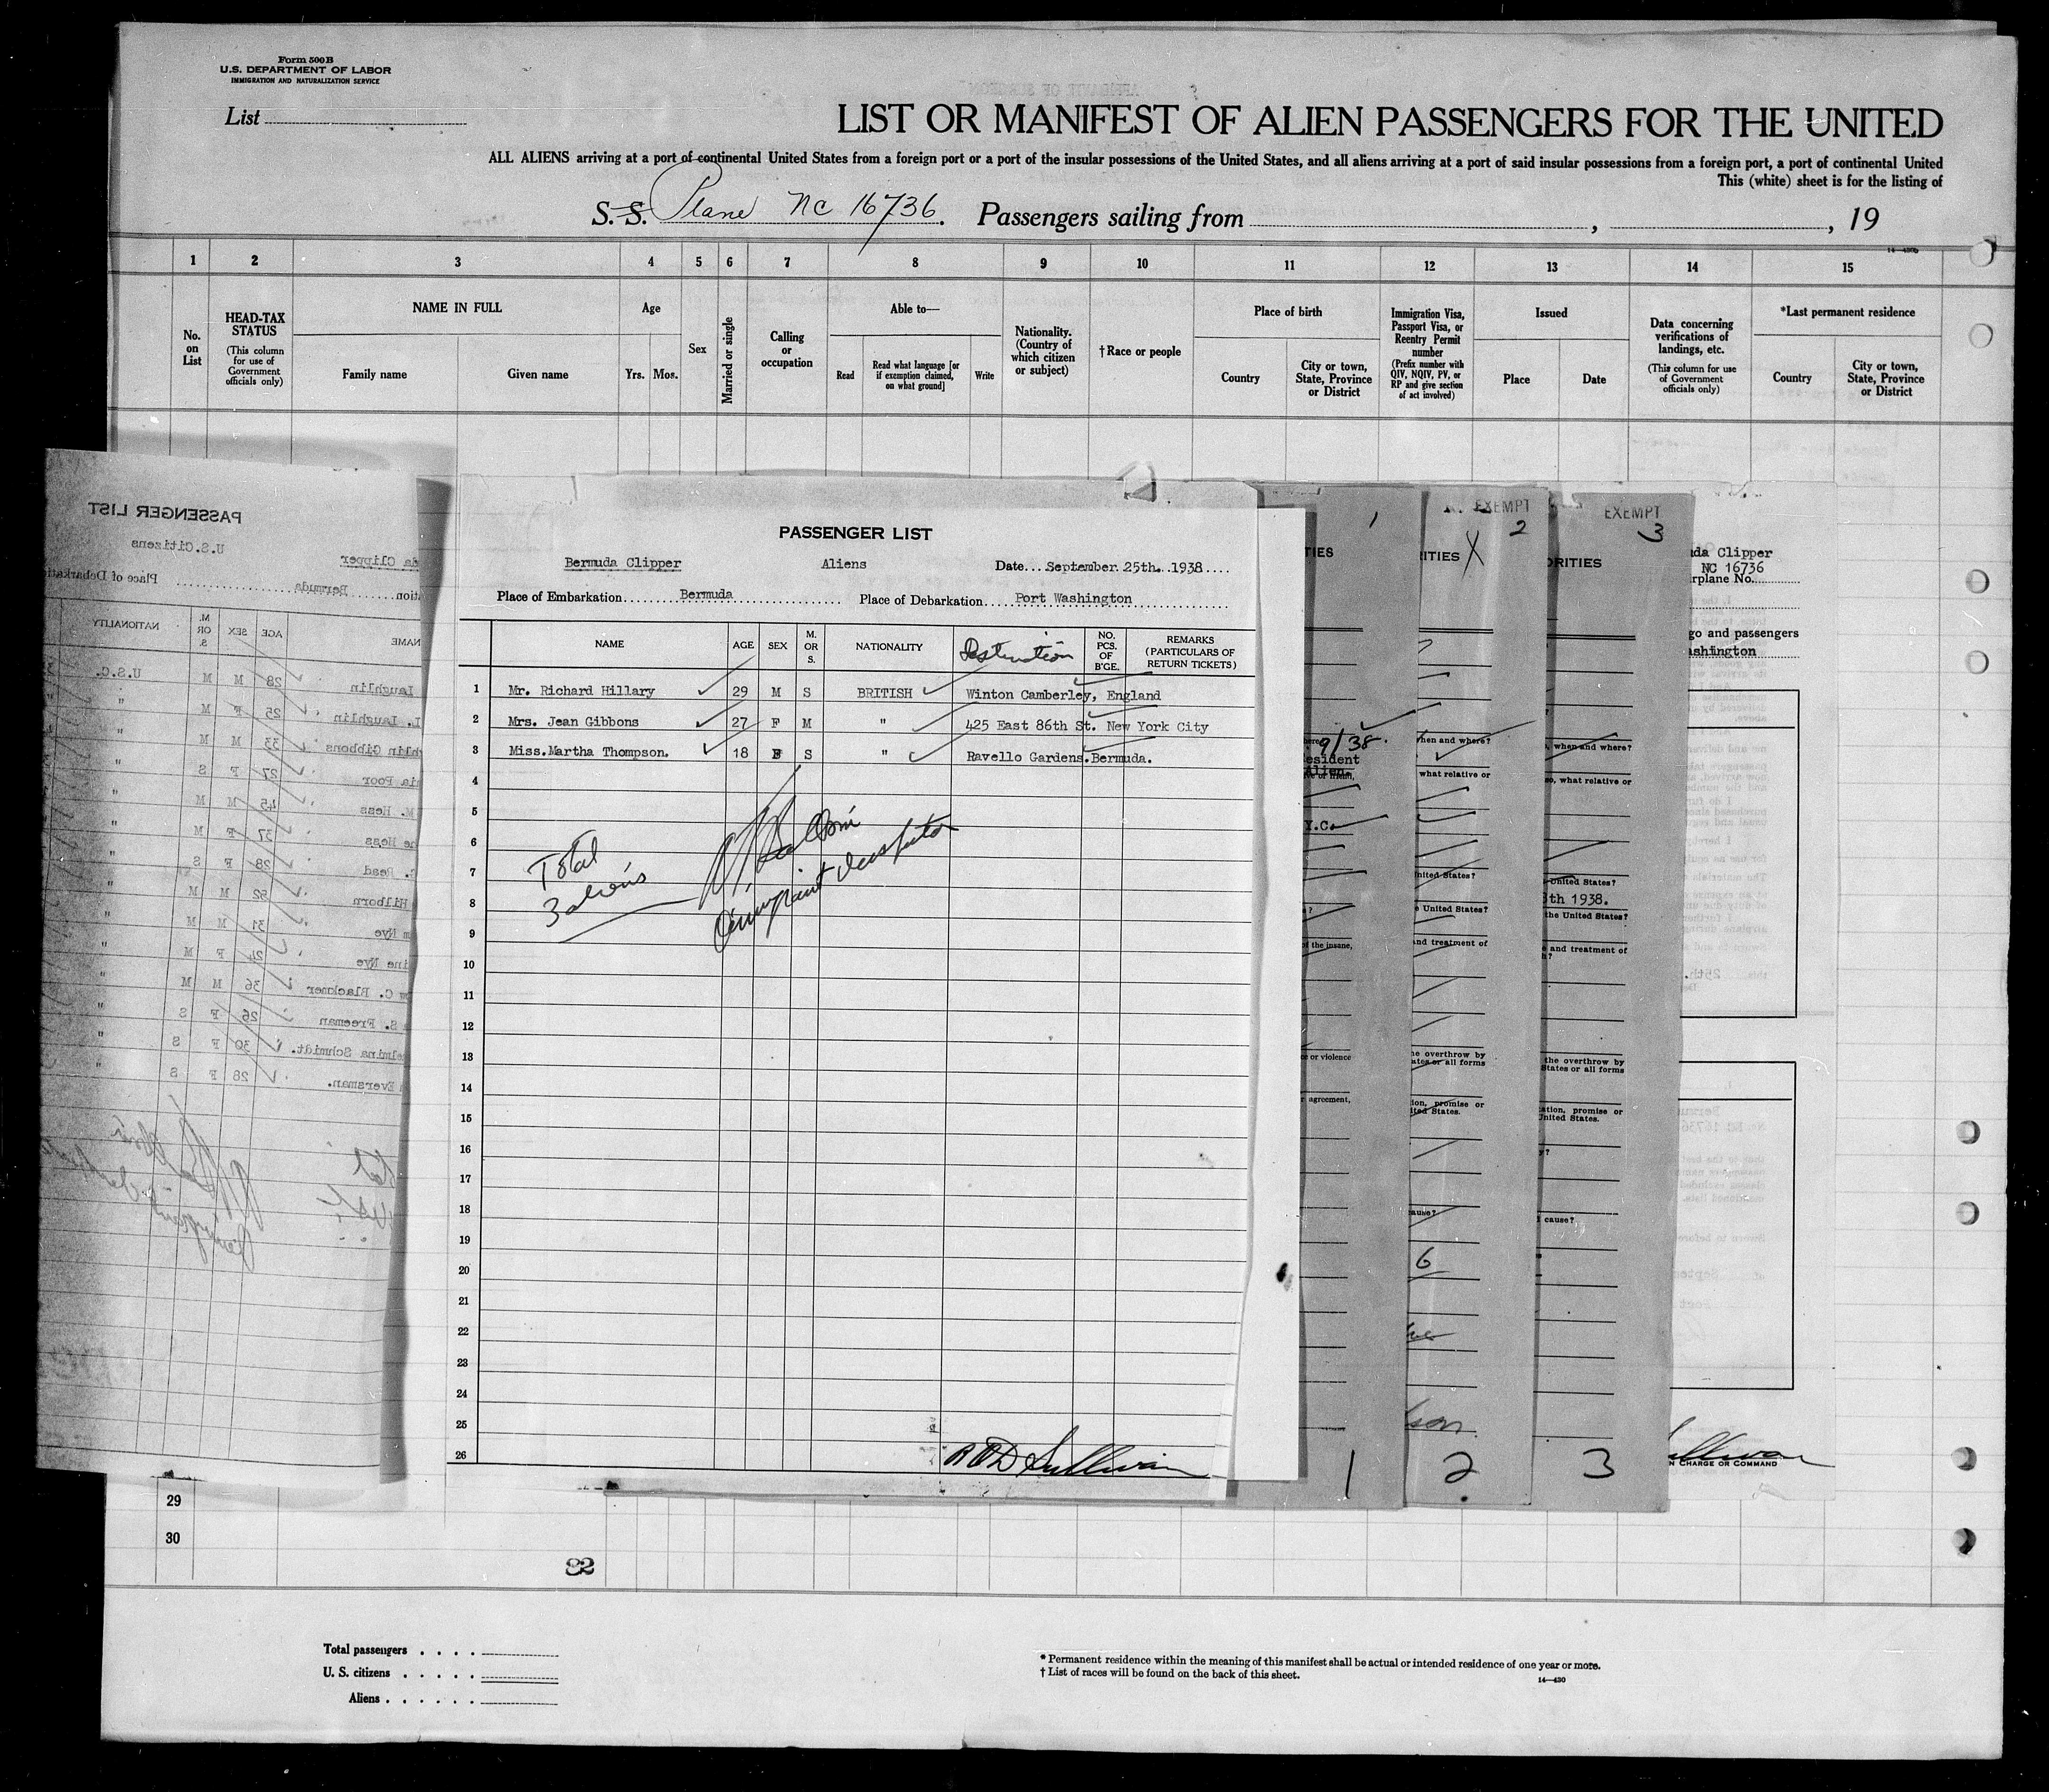 Form 500 B
U.S. DEPARTMENT OF LABOR
IMMIGRATION AND NATURALIZATION SERVICE
List
LIST OR MANIFEST OF ALIEN PASSENGERS FOR THE UNITED
ALL ALIENS arriving at a port of continental United States from a foreign port or a port of the insular possessions of the United States, and all aliens arriving at a port of said insular possessions from a foreign port, a port of continental United
This (white) sheet is for the listing of
S. S. Plane NC 16736. Passengers sailing from , , 19
14—430b
1 2 3 4 5 6 7 8 9 10 11 12 13 14 15
No. on List
HEAD-TAX STATUS (This column for use of Government officials only)
NAME IN FULL
Family name Given name
Age
Yrs. Mos.
Sex
Married or single
Calling or occupation
Able to—
Read Read what language [or if exemption claimed, on what ground] Write
Nationality. (Country of which citizen or subject)
†Race or people
Place of birth
Country City or town, State, Province or District
Immigration Visa, Passport Visa, or Reentry Permit number (Prefix number with QIV, NQIV, PV, or RP and give section of act involved)
Issued
Place Date
Data concerning verifications of landings, etc. (This column for use of Government officials only)
*Last permanent residence
Country City or town, State, Province or District
PASSENGER LIST
U.S.Citizens
da Clipper
tion Bermuda Place of Debarkation
NAME AGE SEX M. OR S. NATIONALITY
Laughlin 28 M M U.S.C.
L. Laughlin 25 F M "
hlin Gibbons 33 M M "
nia Poor 27 F S "
M. Hess 45 M M "
ne Hess 37 F M "
C. Read 28 F S "
Hilborn 52 M M "
m Nye 31 M M "
ine Nye 24 F M "
w C. Blackmer 36 M M "
a S. Freeman 26 F S "
elmina Schmidt. 30 F S "
Eversman. 28 F S "
PASSENGER LIST
Bermuda Clipper Aliens Date... September 25th. 1938....
Place of Embarkation Bermuda Place of Debarkation Port Washington
NAME AGE SEX M. OR S. NATIONALITY Destination NO. PCS. OF B'GE. REMARKS (PARTICULARS OF RETURN TICKETS)
1 Mr. Richard Hillary 29 M S BRITISH Winton Camberley, England
2 Mrs. Jean Gibbons 27 F M " 425 East 86th St. New York City
3 Miss.Martha Thompson. 18 F S " Ravello Gardens.Bermuda.
4
5
6
7
8
9
10
11
12
13
14
15
16
17
18
19
20
21
22
23
24
25
26
Total
3 aliens
Immigrant Inspector
R O D Sullivan
1
TIES
9/38.
esident
Alien.
Y.C.
?
of the insane,
e or violence
r agreement,
1
EXEMPT
2
RITIES X
when and where?
what relative or
nited States?
e United States?
and treatment of
he overthrow by
tates or all forms
tion, promise or
ited States.
ause?
6
son
2
EXEMPT
3
ORITIES
, when and where?
so, what relative or
United States?
8th 1938.
the United States?
e and treatment of
h?
the overthrow by
States or all forms
tation, promise or
United States.
y?
cause?
3
uda Clipper
NC 16736
irplane No.
go and passengers
ashington
25th.
ullivan
N CHARGE OR COMMAND
29
30
82
Total passengers . . . .
U. S. citizens . . . . .
Aliens . . . . . .
* Permanent residence within the meaning of this manifest shall be actual or intended residence of one year or more.
† List of races will be found on the back of this sheet.
14—430